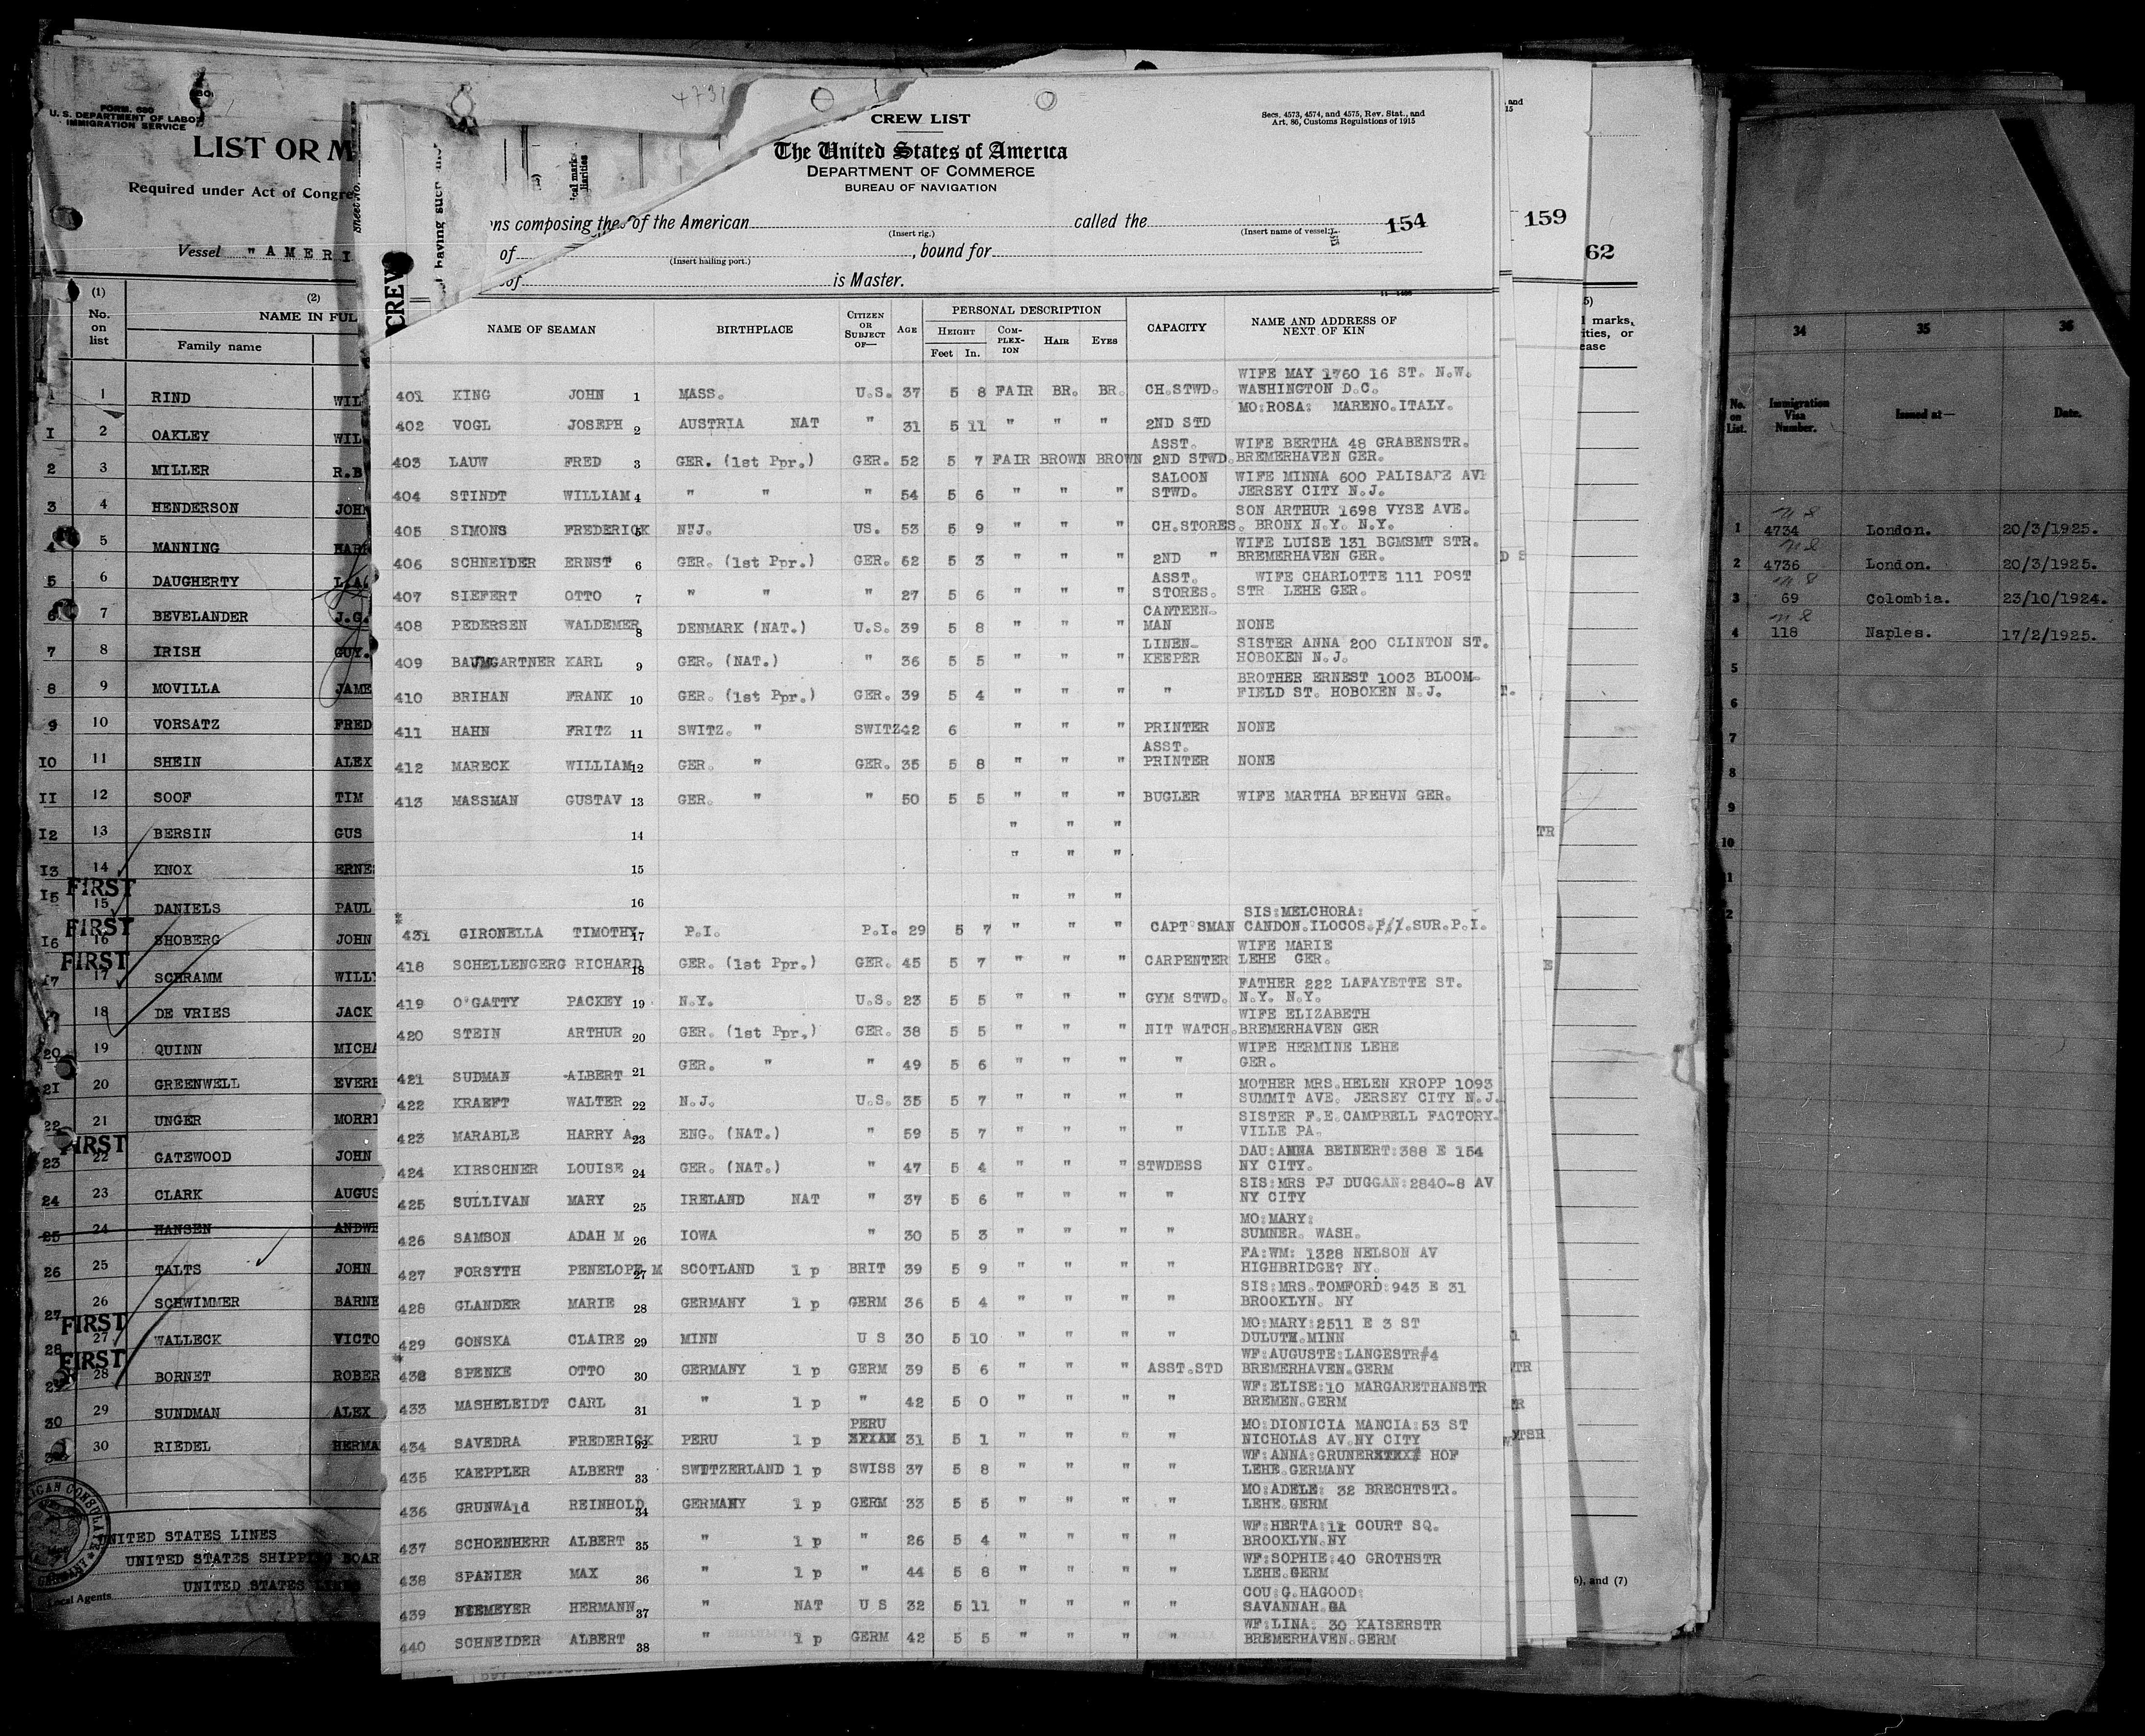 FORM. 680
U. S. DEPARTMENT OF LABOR
IMMIGRATION SERVICE
LIST OR M
Required under Act of Congre
Vessel "AMERI
(1) (2)
No. on list NAME IN FUL
Family name
1 RIND WIL
2 OAKLEY WIL
3 MILLER R.B
4 HENDERSON JOHN
5 MANNING HARR
6 DAUGHERTY L.A.
7 BEVELANDER J.G.
8 IRISH GUY.
9 MOVILLA JAME
10 VORSATZ FRED
11 SHEIN ALEX
12 SOOF TIM
13 BERSIN GUS
14 KNOX ERNE
FIRST
15 DANIELS PAUL
FIRST
16 SHOBERG JOHN
FIRST
17 SCHRAMM WILL
18 DE VRIES JACK
19 QUINN MICHA
20 GREENWELL EVERE
21 UNGER MORRI
FIRST
22 GATEWOOD JOHN
23 CLARK AUGUS
24 HANSEN ANDWE
25 TALTS JOHN
26 SCHWIMMER BARNE
FIRST
27 WALLECK VICTO
FIRST
28 BORNET ROBER
29 SUNDMAN ALEX
30 RIEDEL HERMA
UNITED STATES LINES
UNITED STATES SHIPPING BOAR
UNITED STATES LINES
Local Agents
4731
CREW LIST
Secs. 4573, 4574, and 4575, Rev. Stat., and
Art. 86, Customs Regulations of 1915
The United States of America
DEPARTMENT OF COMMERCE
BUREAU OF NAVIGATION
ns composing the of the American called the 154
(Insert rig.) (Insert name of vessel.)
of , bound for
(Insert hailing port.)
of is Master.
CREW
having such
Sheet No.
NAME OF SEAMAN BIRTHPLACE CITIZEN OR SUBJECT OF— AGE PERSONAL DESCRIPTION CAPACITY NAME AND ADDRESS OF NEXT OF KIN
HEIGHT COM-PLEX-ION HAIR EYES
Feet In.
401 KING JOHN 1 MASS. U.S. 37 5 8 FAIR BR. BR. CH.STWD. WIFE MAY 1760 16 ST. N.W. WASHINGTON D.C.
402 VOGL JOSEPH 2 AUSTRIA NAT " 31 5 11 " " " 2ND STD MO:ROSA: MARENO.ITALY.
403 LAUW FRED 3 GER. (1st Ppr.) GER. 52 5 7 FAIR BROWN BROWN ASST. 2ND STWD. WIFE BERTHA 48 GRABENSTR. BREMERHAVEN GER.
404 STINDT WILLIAM 4 " " " 54 5 6 " " " SALOON STWD. WIFE MINNA 600 PALISADE AVE JERSEY CITY N.J.
405 SIMONS FREDERICK 5 N"J. US. 53 5 9 " " " CH.STORES. SON ARTHUR 1698 VYSE AVE. BRONX N.Y. N.Y.
406 SCHNEIDER ERNST 6 GER. (1st Ppr.) GER. 62 5 3 " " " 2ND " WIFE LUISE 131 BGMSMT STR. BREMERHAVEN GER.
407 SIEFERT OTTO 7 " " " 27 5 6 " " " ASST. STORES. WIFE CHARLOTTE 111 POST STR LEHE GER.
408 PEDERSEN WALDEMER 8 DENMARK (NAT.) U.S. 39 5 8 " " " CANTEEN- MAN NONE
409 BAUMGARTNER KARL 9 GER. (NAT.) " 36 5 5 " " " LINEN- KEEPER SISTER ANNA 200 CLINTON ST. HOBOKEN N.J.
410 BRIHAN FRANK 10 GER. (1st Ppr.) GER. 39 5 4 " " " " BROTHER ERNEST 1003 BLOOM- FIELD ST. HOBOKEN N.J.
411 HAHN FRITZ 11 SWITZ. " SWITZ 42 6 " " " PRINTER NONE
412 MARECK WILLIAM 12 GER. " GER. 35 5 8 " " " ASST. PRINTER NONE
413 MASSMAN GUSTAV 13 GER. " " 50 5 5 " " " BUGLER WIFE MARTHA BREHVN GER.
14 " " "
15 " " "
16 " " "
* 431 GIRONELLA TIMOTHY 17 P.I. P.I. 29 5 7 " " " CAPT'SMAN SIS:MELCHORA: CANDON.ILOCOS.P/I.SUR.P.I.
418 SCHELLENGERG RICHARD 18 GER. (1st Ppr.) GER. 45 5 7 " " " CARPENTER WIFE MARIE LEHE GER.
419 O'GATTY PACKEY 19 N.Y. U.S. 23 5 5 " " " GYM STWD. FATHER 222 LAFAYETTE ST. N.Y. N.Y.
420 STEIN ARTHUR 20 GER. (1st Ppr.) GER. 38 5 5 " " " NIT WATCH. WIFE ELIZABETH BREMERHAVEN GER
421 SUDMAN ALBERT 21 GER. " " 49 5 6 " " " " WIFE HERMINE LEHE GER.
422 KRAEFT WALTER 22 N.J. U.S. 35 5 7 " " " " MOTHER MRS.HELEN KROPP 1093 SUMMIT AVE. JERSEY CITY N.J.
423 MARABLE HARRY A. 23 ENG. (NAT.) " 59 5 7 " " " " SISTER F.E.CAMPBELL FACTORY- VILLE PA.
424 KIRSCHNER LOUISE 24 GER. (NAT.) " 47 5 4 " " " STWDESS DAU:ANNA BEINERT:388 E 154 NY CITY.
425 SULLIVAN MARY 25 IRELAND NAT " 37 5 6 " " " " SIS:MRS PJ DUGGAN:2840-8 AV NY CITY
426 SAMSON ADAH M 26 IOWA " 30 5 3 " " " " MO:MARY: SUMNER. WASH.
427 FORSYTH PENELOPE M 27 SCOTLAND 1 p BRIT 39 5 9 " " " " FA:WM: 1328 NELSON AV HIGHBRIDGE? NY.
428 GLANDER MARIE 28 GERMANY 1 p GERM 36 5 4 " " " " SIS:MRS.TOMFORD:943 E 31 BROOKLYN. NY
429 GONSKA CLAIRE 29 MINN U S 30 5 10 " " " " MO:MARY:2511 E 3 ST DULUTH.MINN
* 432 SPENKE OTTO 30 GERMANY 1 p GERM 39 5 6 " " " ASST.STD WF:AUGUSTE:LANGESTR#4 BREMERHAVEN.GERM
433 MASHELEIDT CARL 31 " 1 p " 42 5 0 " " " " WF:ELISE:10 MARGARETHANSTR BREMEN.GERM
434 SAVEDRA FREDERICK 32 PERU 1 p PERU 31 5 1 " " " " MO:DIONICIA MANCIA:53 ST NICHOLAS AV.NY CITY
435 KAEPPLER ALBERT 33 SWITZERLAND 1 p SWISS 37 5 8 " " " " WF:ANNA:GRUNER HOF LEHE.GERMANY
436 GRUNWAld REINHOLD 34 GERMANY 1 p GERM 33 5 5 " " " " MO:ADELE: 32 BRECHTSTR. LEHE.GERM
437 SCHOENHERR ALBERT 35 " 1 p " 26 5 4 " " " " WF:HERTA:11 COURT SQ. BROOKLYN.NY
438 SPANIER MAX 36 " 1 p " 44 5 8 " " " " WF:SOPHIE:40 GROTHSTR LEHE.GERM
439 NIEMEYER HERMANN 37 " NAT U S 32 5 11 " " " " COU:G.HAGOOD: SAVANNAH.GA
440 SCHNEIDER ALBERT 38 " 1 p GERM 42 5 5 " " " " WF:LINA: 30 KAISERSTR BREMERHAVEN.GERM
159
62
marks,
ities, or
ease
6), and (7)
34 35 36
No. on List. Immigration Visa Number. Issued at— Date.
1 4734 London. 20/3/1925.
2 4736 London. 20/3/1925.
3 69 Colombia. 23/10/1924.
4 118 Naples. 17/2/1925.
5
6
7
8
9
10